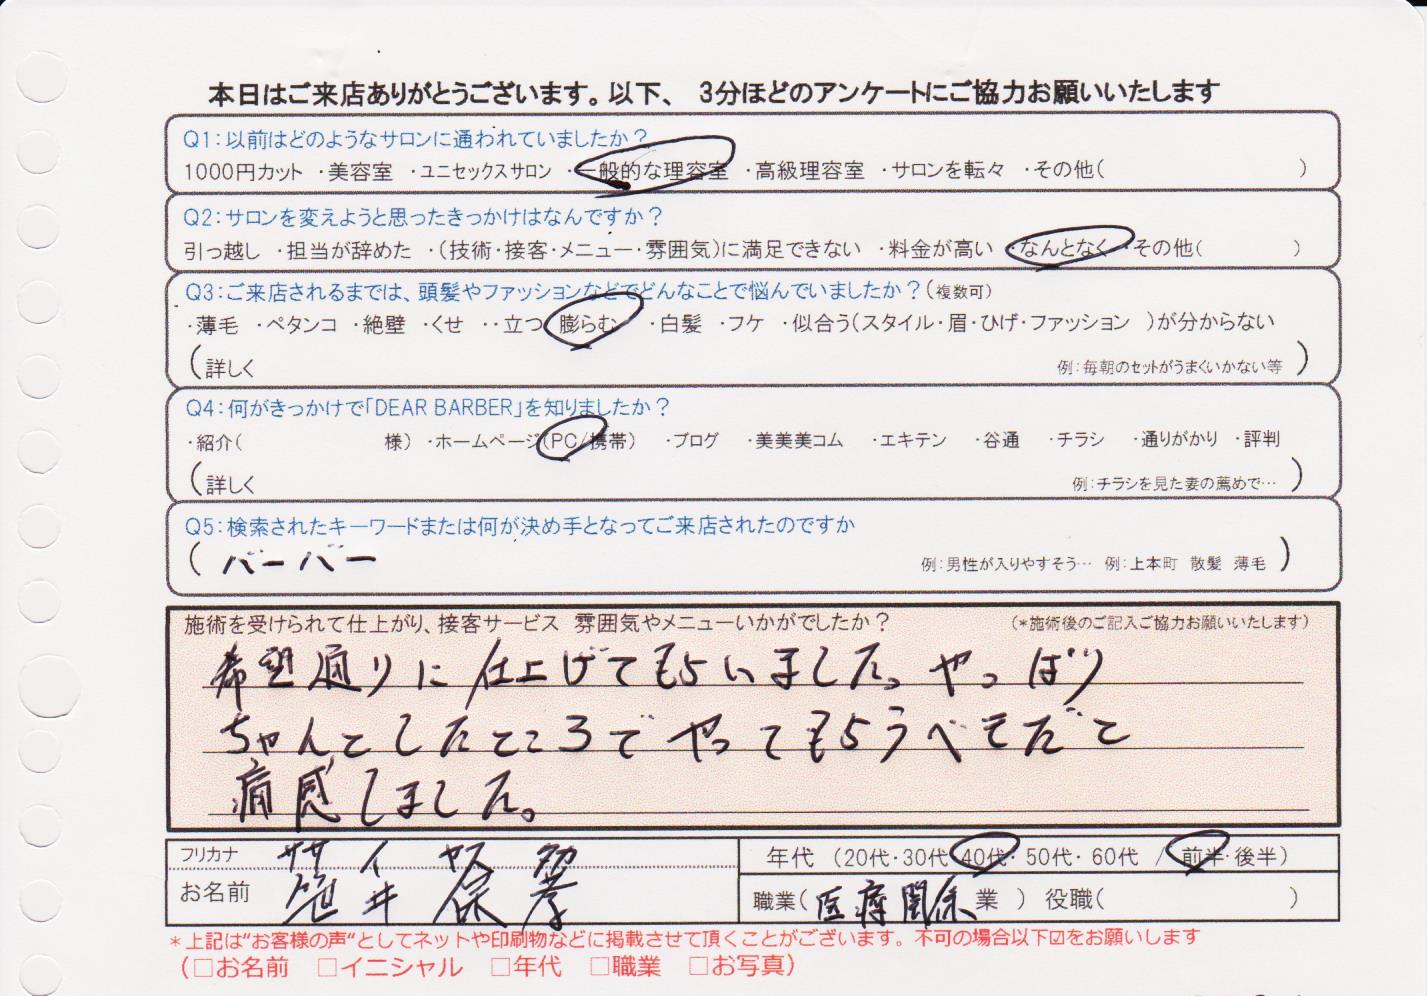 本日はご来店ありがとうございます。以下、 3分ほどのアンケートにご協力お願いいたします
Q1:以前はどのようなサロンに通われていましたか?
1000円カット ・美容室 ・ユニセックスサロン ・一般的な理容室 ・高級理容室 ・サロンを転々 ・その他( )
Q2:サロンを変えようと思ったきっかけはなんですか?
引っ越し ・担当が辞めた ・(技術・接客・メニュー・雰囲気)に満足できない ・料金が高い ・なんとなく ・その他( )
Q3:ご来店されるまでは、頭髪やファッションなどでどんなことで悩んでいましたか?(複数可)
・薄毛 ・ペタンコ ・絶壁 ・くせ ・・立つ 膨らむ ・白髪 ・フケ ・似合う(スタイル・眉・ひげ・ファッション )が分からない
(詳しく 例:毎朝のセットがうまくいかない等 )
Q4:何がきっかけで「DEAR BARBER」を知りましたか?
・紹介( 様) ・ホームページ(PC/携帯) ・ブログ ・美美美コム ・エキテン ・谷通 ・チラシ ・通りがかり ・評判
(詳しく 例:チラシを見た妻の薦めで… )
Q5:検索されたキーワードまたは何が決め手となってご来店されたのですか
( バーバー 例:男性が入りやすそう… 例:上本町 散髪 薄毛 )
施術を受けられて仕上がり、接客サービス 雰囲気やメニューいかがでしたか? (*施術後のご記入ご協力お願いいたします)
希望通りに仕上げてもらいました。やっぱり
ちゃんとしたところでやってもらうべきだと
痛感しました。
フリカナ ササイ ヤスタカ
お名前 笹井 保孝
年代 (20代・30代・40代・50代・60代 / 前半・後半)
職業(医療関係業 ) 役職( )
*上記は“お客様の声“としてネットや印刷物などに掲載させて頂くことがございます。不可の場合以下☑をお願いします
(□お名前 □イニシャル □年代 □職業 □お写真)